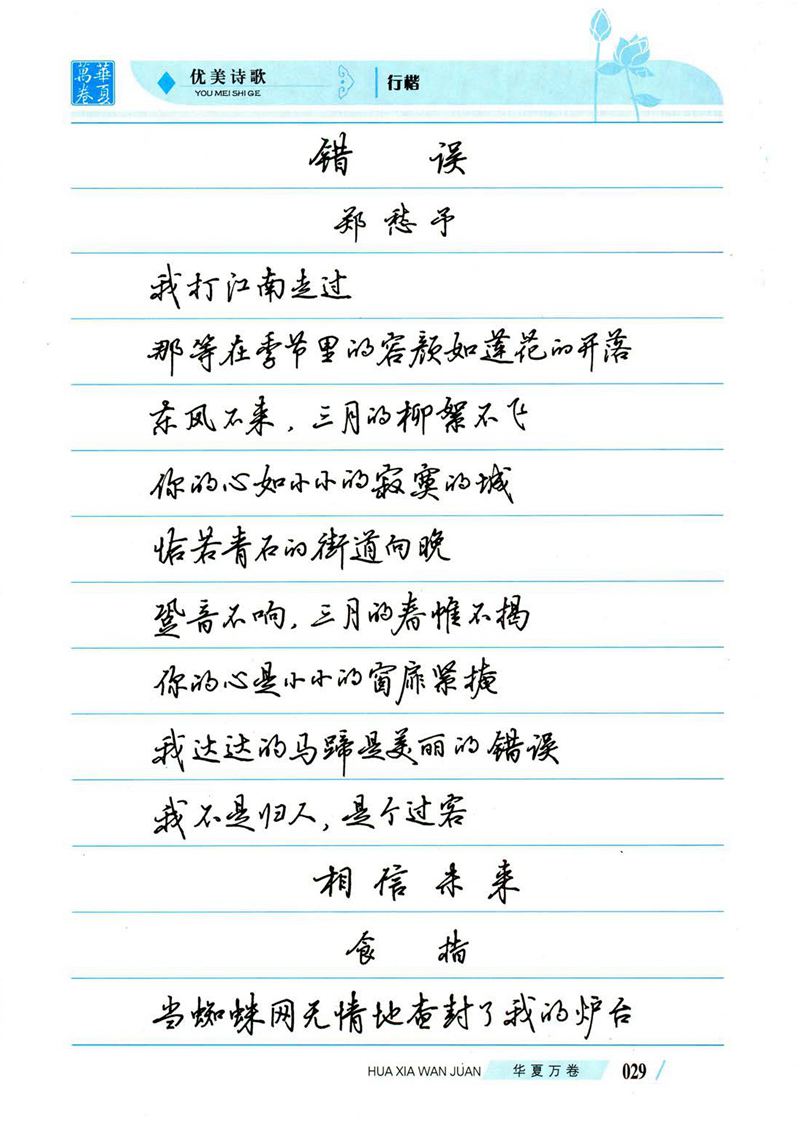 華夏
萬卷
优美诗歌
YOU MEI SHI GE
行楷
错 误
郑愁予
我打江南走过
那等在季节里的容颜如莲花的开落
东风不来,三月的柳絮不飞
你的心如小小的寂寞的城
恰若青石的街道向晚
跫音不响,三月的春帷不揭
你的心是小小的窗扉紧掩
我达达的马蹄是美丽的错误
我不是归人,是个过客
相信未来
食 指
当蜘蛛网无情地查封了我的炉台
HUA XIA WAN JUAN
华夏万卷
029